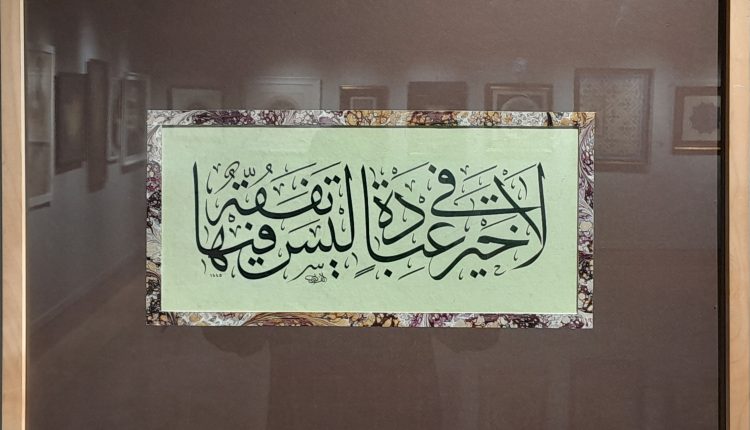 لَا خَيْرَ فِي عِبَادَةٍ لَيْسَ فِيْهَا تَفَقُّهٌ
١٤٤٥